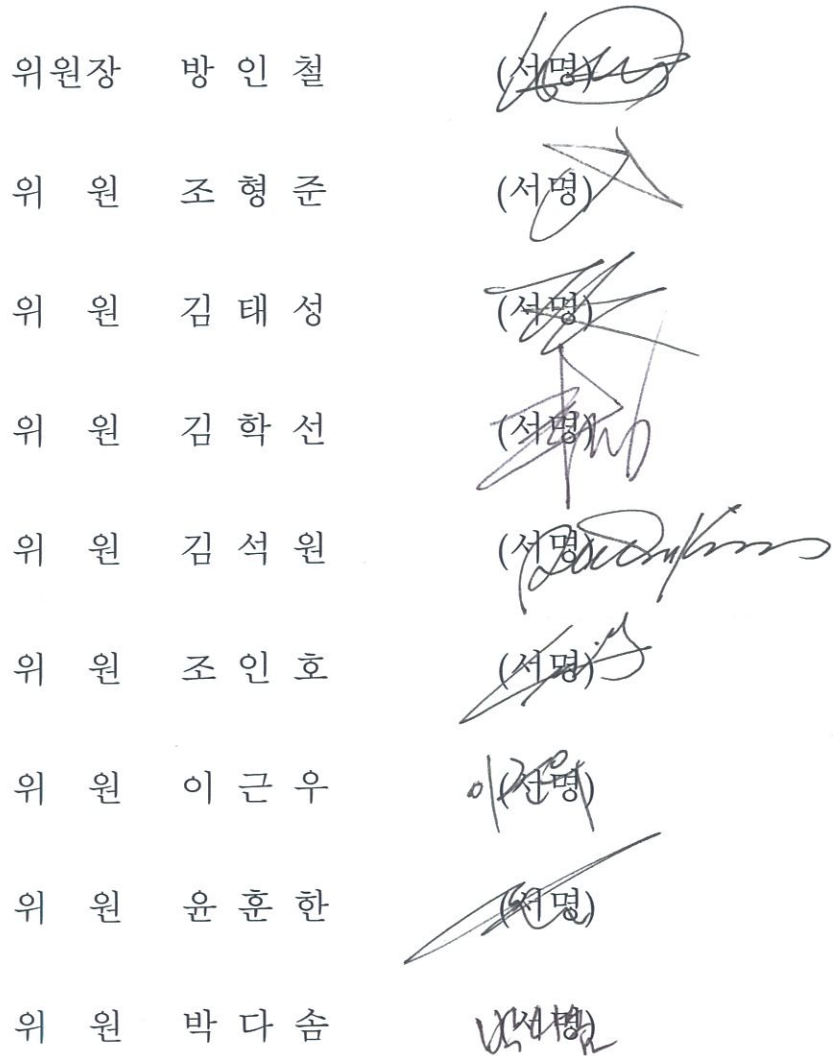 위원장 방 인 철 (서명)
위 원 조 형 준 (서명)
위 원 김 태 성 (서명)
위 원 김 학 선 (서명)
위 원 김 석 원 (서명)
위 원 조 인 호 (서명)
위 원 이 근 우 (서명)
위 원 윤 훈 한 (서명)
위 원 박 다 솜 (서명)